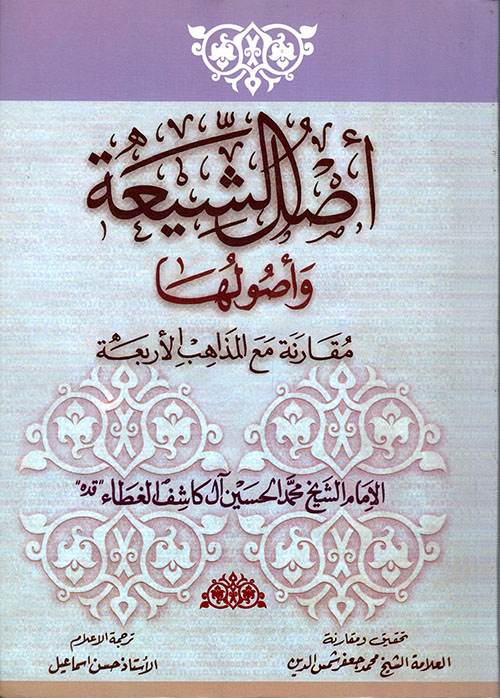 أصل الشيعة
وأصولها
مقارنة مع المذاهب الأربعة
الإمام الشيخ محمد الحسين آل كاشف الغطاء "قده"
تحقيق ومقارنة
العلامة الشيخ محمد جعفر شمس الدين
ترجمة الأعلام
الأستاذ حسن اسماعيل